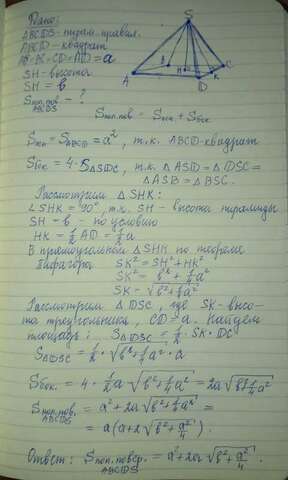 Дано:
ABCDS - пирам. правил.
ABCD - квадрат
AB=BC=CD=AD=a
SH - высота
SH = b
Sпол.пов ABCDS - ?
S
A
B
C
D
H
K
Sпол.пов = Sосн + Sбок
Sосн = SABCD = a², т.к. ABCD - квадрат
Sбок = 4·SΔSDC, т.к. ΔASD = ΔDSC =
ΔASB = ΔBSC.
Рассмотрим ΔSHK:
∠SHK = 90°, т.к. SH - высота пирамиды
SH = b - по условию
HK = 1/2 AD = 1/2 a
В прямоугольной ΔSHK по теореме
Пифагора SK² = SH² + HK²
SK² = b² + 1/4 a²
SK = √(b² + 1/4 a²)
Рассмотрим ΔDSC, где SK - высо-
та треугольника, CD = a. Найдем
площадь: SΔDSC = 1/2 · SK · DC
SΔDSC = 1/2 · √(b² + 1/4 a²) · a
Sбок. = 4 · 1/2 a √(b² + 1/4 a²) = 2a √(b² + 1/4 a²)
Sпол.пов. ABCDS = a² + 2a √(b² + 1/4 a²) =
= a(a + 2√(b² + a²/4)).
Ответ: Sпол.повер. ABCDS = a² + 2a √(b² + a²/4)